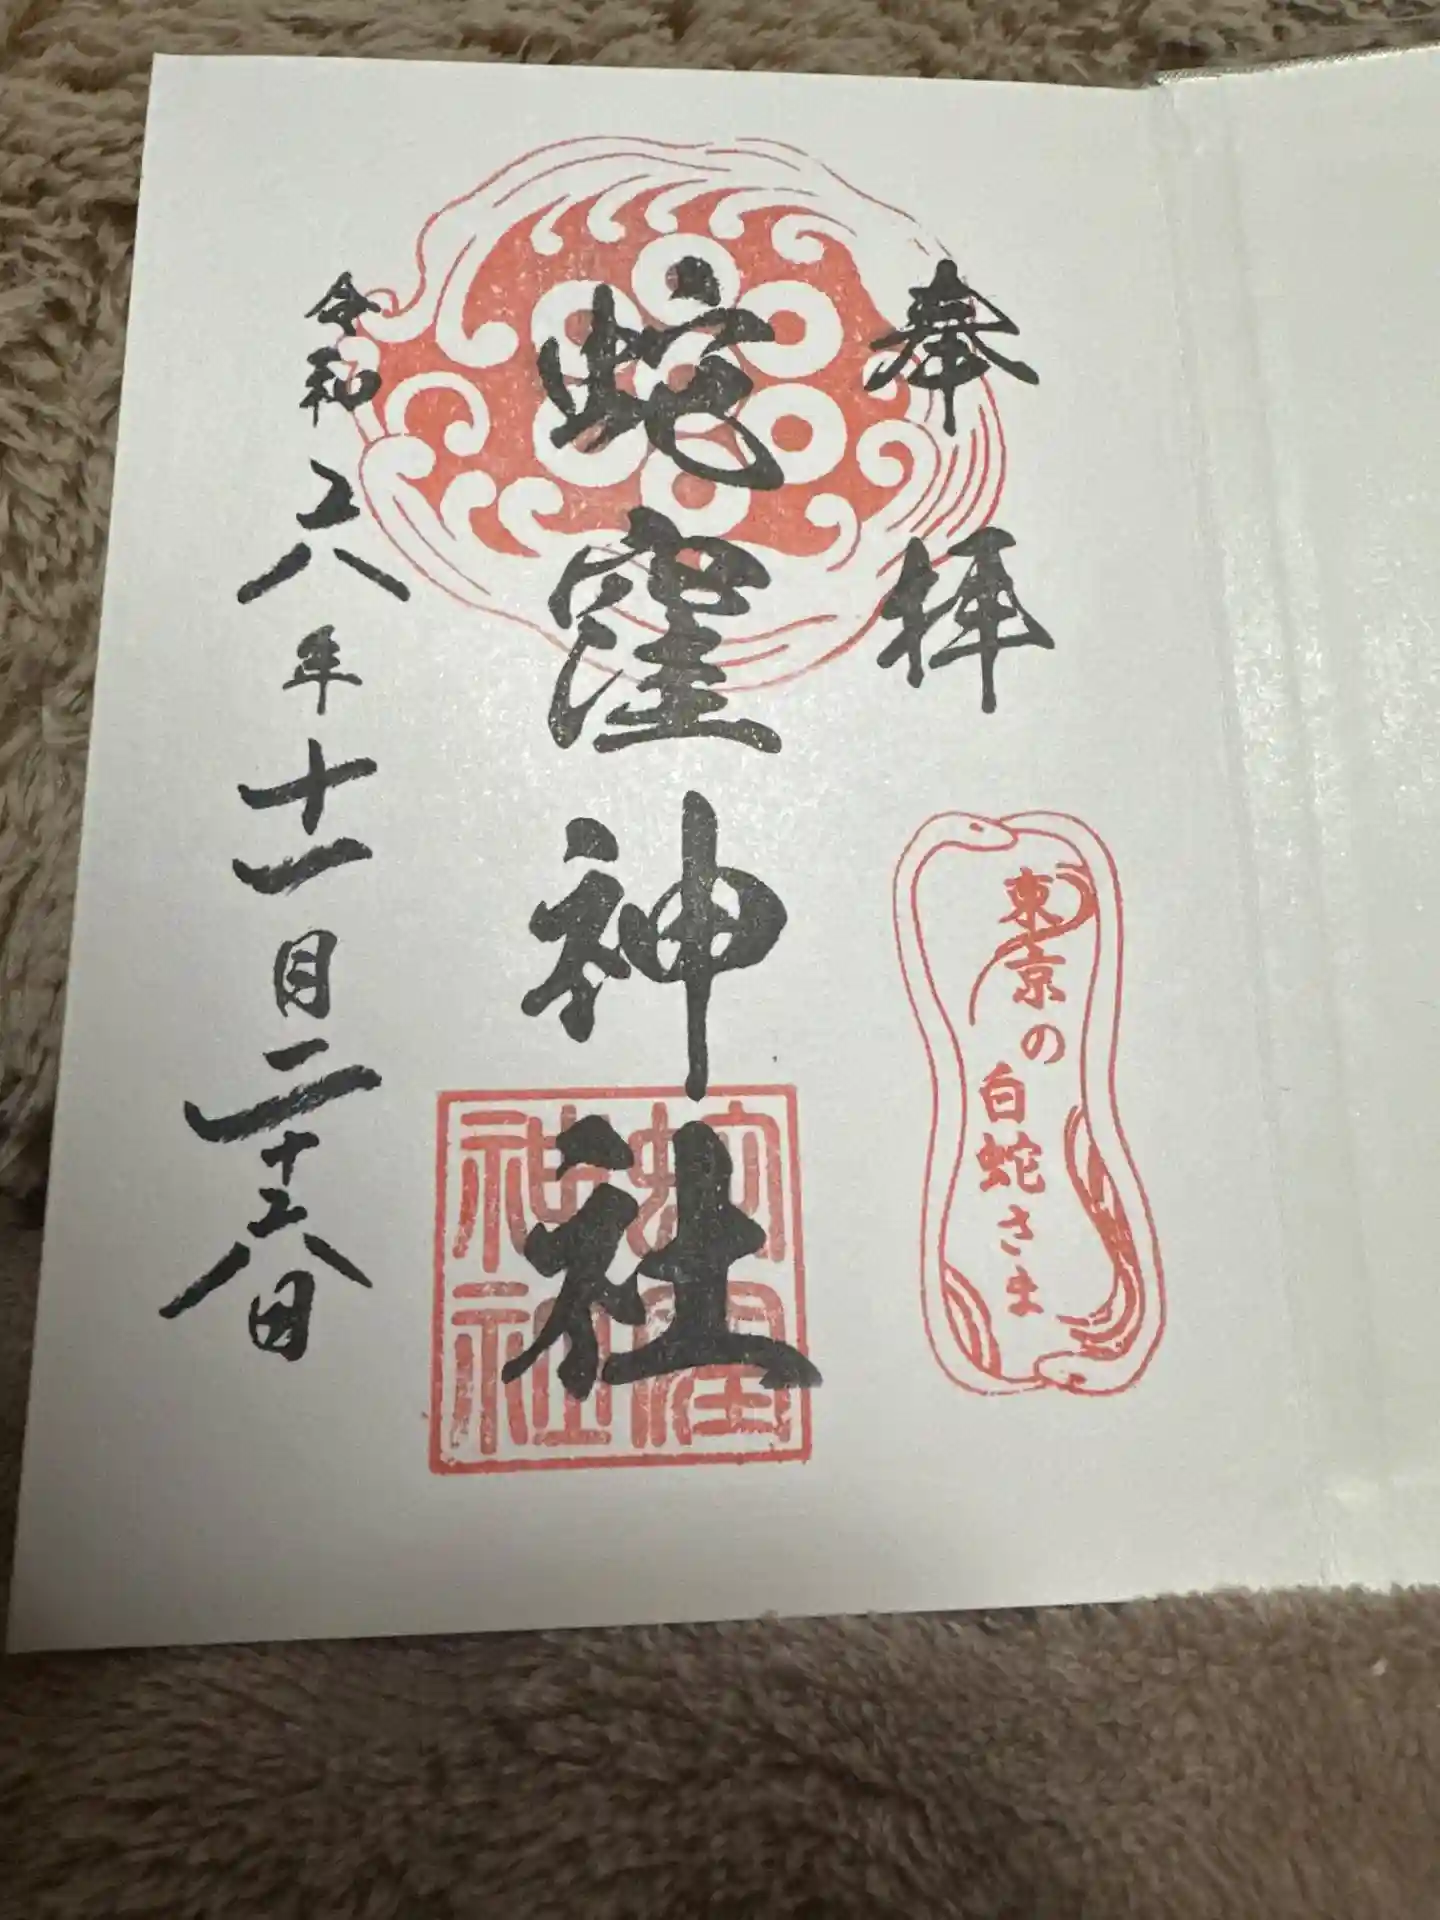 奉拝
東京の
白蛇さま
蛇窪神社
蛇窪
神社
令和六年十一月二十六日